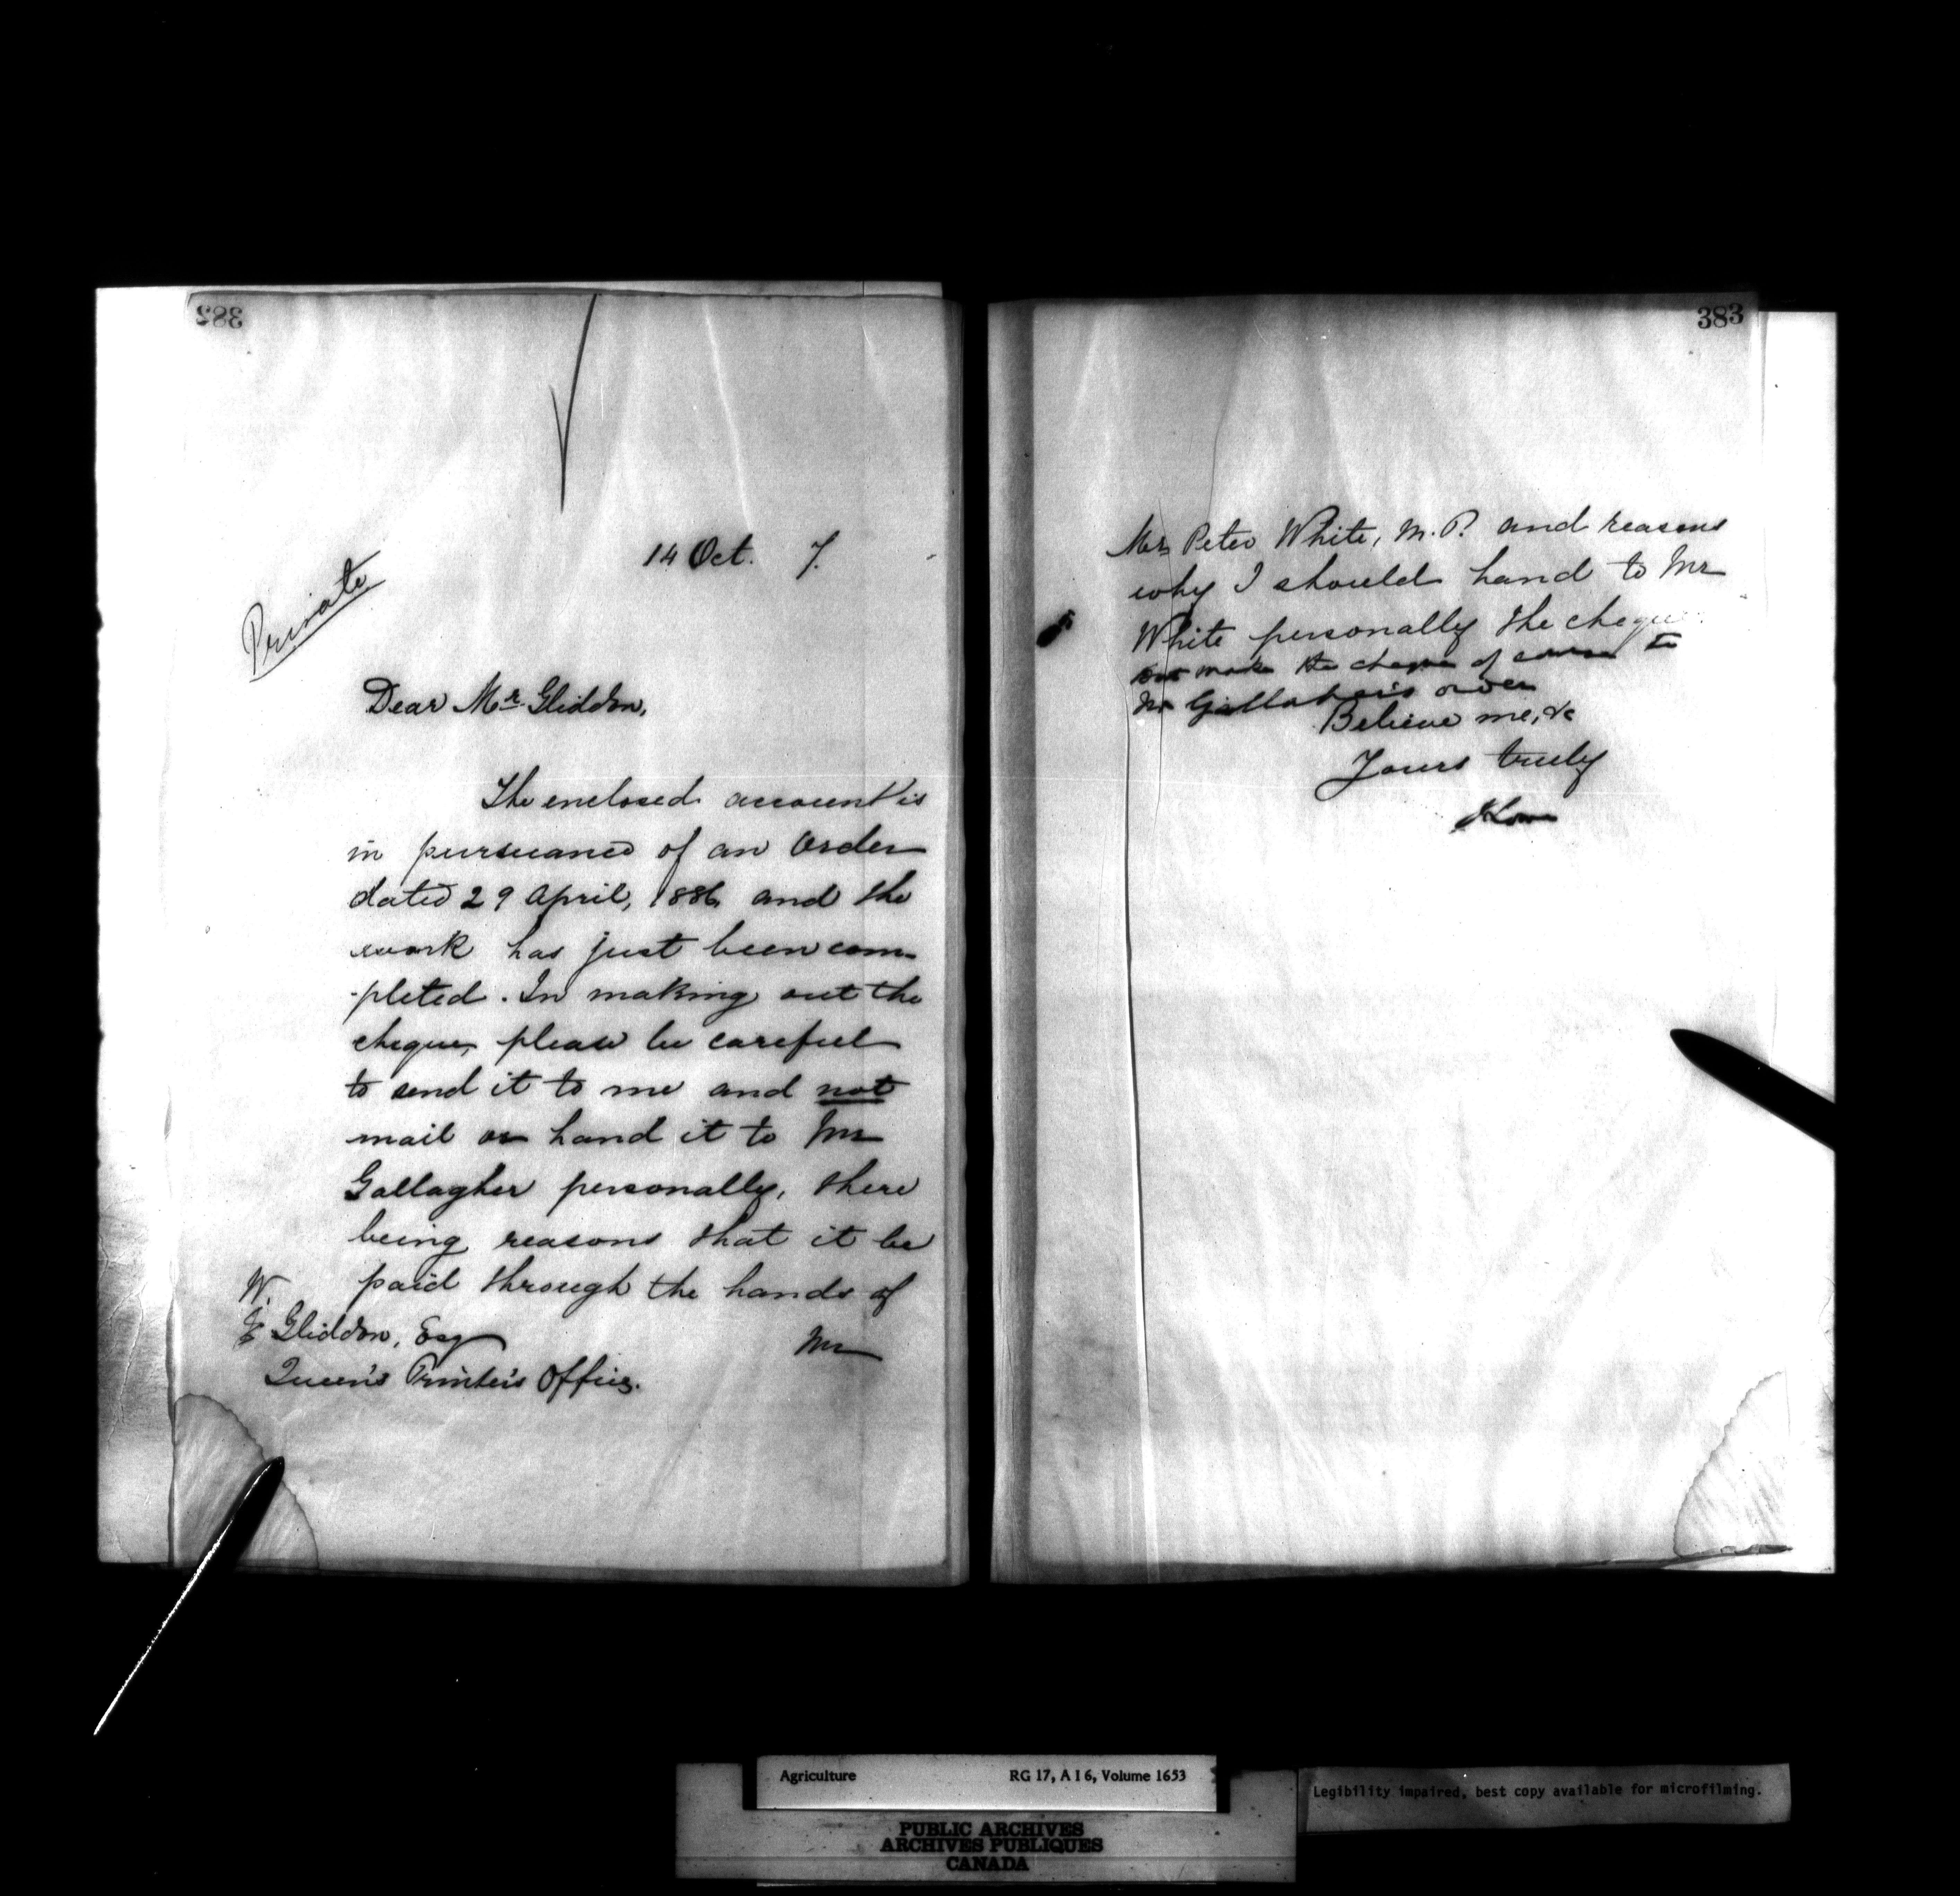 382
14 Oct. 7.
Private
Dear Mr. Gliddon,
The enclosed account is
in pursuance of an Order
dated 29 April, 1886 and the
work has just been com-
-pleted. In making out the
cheque, please be careful
to send it to me and not
mail or hand it to Mr
Gallagher personally, there
being reasons that it be
paid through the hands of
Mr
W.
Gliddon, Esq
Queen's Printer's Office.
383
Mr Peter White, M.P. and reasons
why I should hand to Mr
White personally the cheque
but make the cheque of course to
Mr Gallaher's order
Believe me, &c
Yours truly
J Lowe
Agriculture RG 17, A I 6, Volume 1653
PUBLIC ARCHIVES
ARCHIVES PUBLIQUES
CANADA
Legibility impaired, best copy available for microfilming.